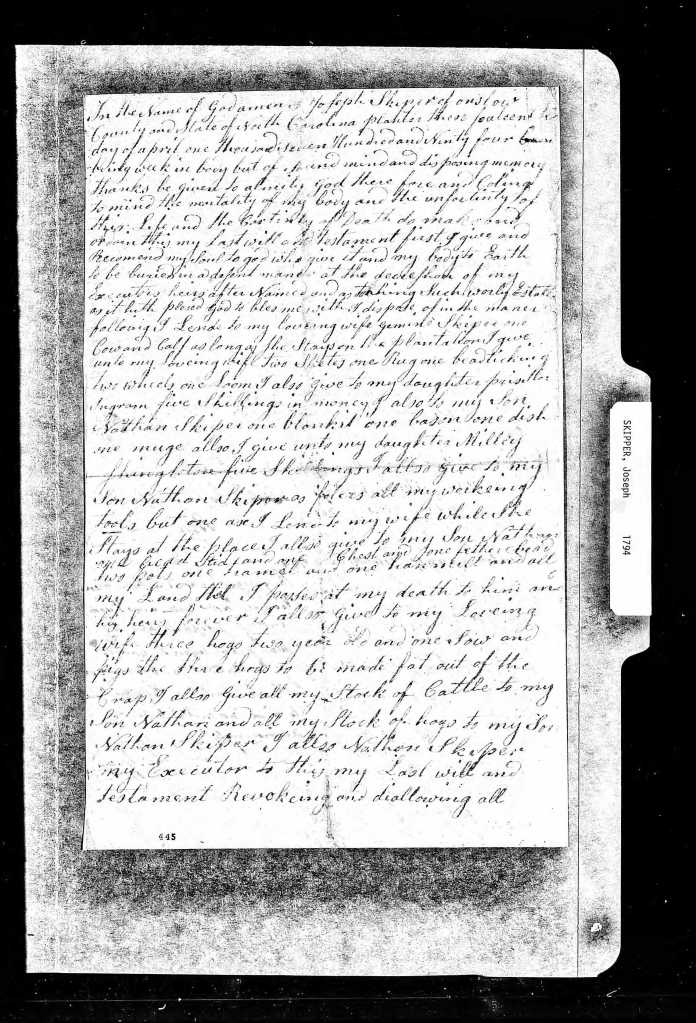 In the Name of God amen I Joseph Skiper of onslow
County and State of North Carolina planter these
day of april one thousand seven Hundred and Ninty four
being week in body but of Sound mind and disposing memory
thanks be given to almity god there fore and Coling
to mind the mortality of my body and the unsertinty of
this Life and the Certinty of Death do make and
ordain this my Last will and testament first I give and
Recomend my Soul to god who give it and my body to Earth
to be buried in a desent maner at the descretion of my
Executors heirs after Named and as touching Such worly Estate
as it hath plesed God to bles me with I dispose of in the maner
following I Lend to my loveing wife Jemime Skiper one
Cow and Calf as long as she Stays on the plantation I give
unto my loveing wife two Sheets one Rug one beadticking
two wheels one Loom I also give to my daughter
Ingram five Shillings in money I also to my Son
Nathan Skiper one blankit one bason one dish
one muge allso I give unto my daughter Milley
five Shillings I allso give to my
Son Nathan Skiper all my workeing
tools but one axe I Lend to my wife while She
Stays at the place I allso give to my Son Nathan
one Chest and one fether bead
two pots one and one and all
my Land that I posses at my death to him and
his heirs forever I allso give to my Loveing
wife three hogs two year old and one Sow and
pigs the three hogs to be made fat out of the
Crap I allso Give all my Stock of Cattle to my
Son Nathan and all my Stock of hogs to my Son
Nathan Skipper I allso Nathan Skiper
my Executor to this my Last will and
testament Revokeing and diallowing all
445
SKIPPER, Joseph 1794